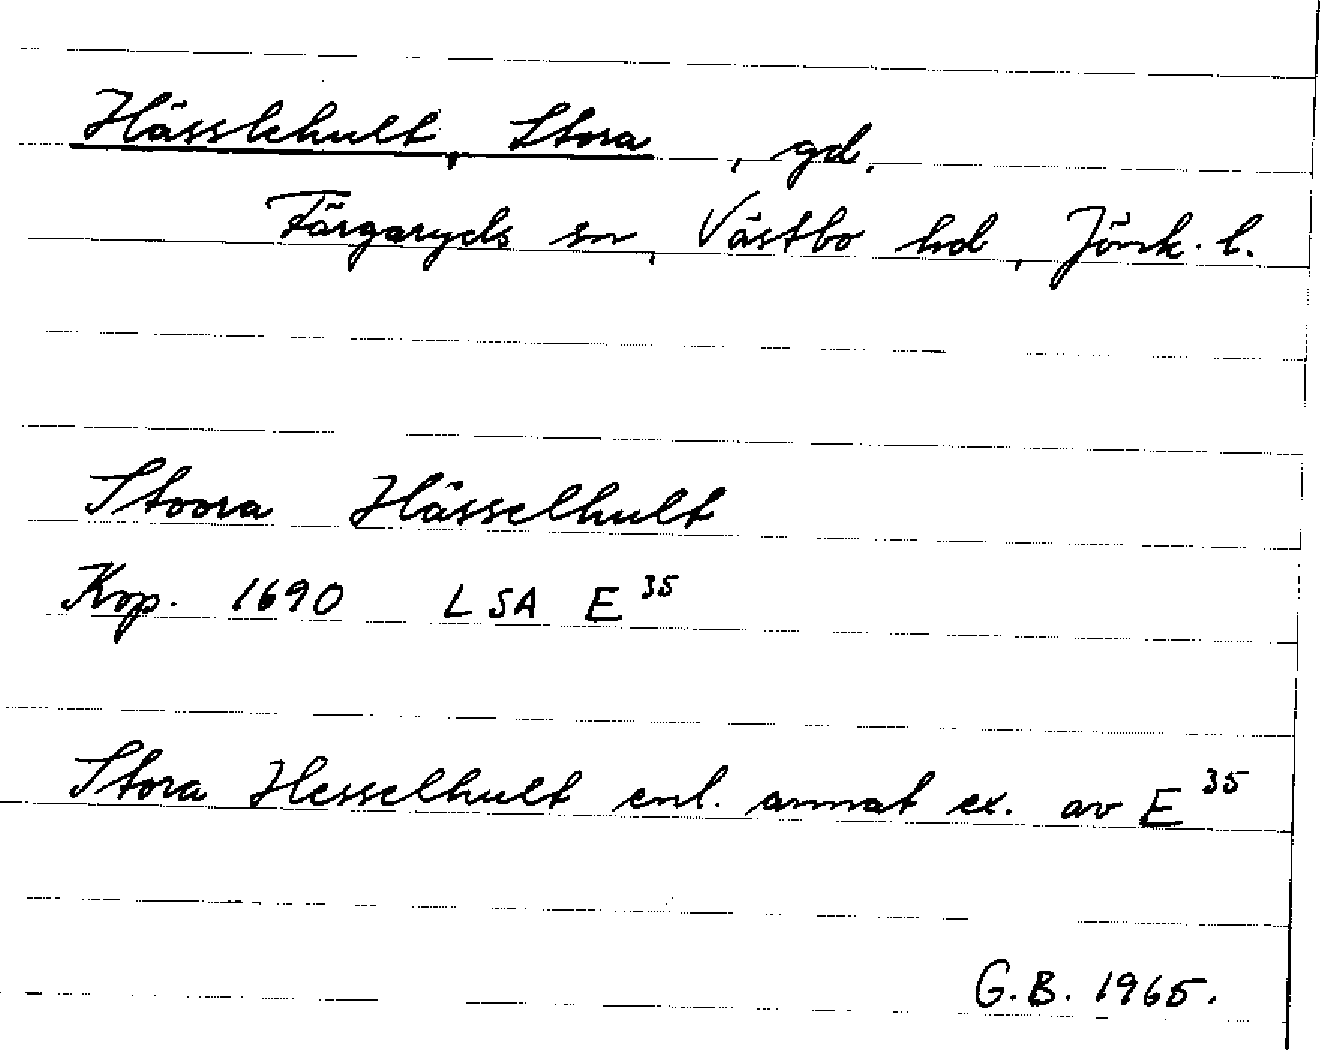 Hässlehult, Stora, gd.
Färgaryds sn, Västbo hd, Jönk. l.
Stoora Hässelhult
Kop. 1690 LSA E³⁵
Stora Hesselhult enl. annat ex. av E³⁵
G.B. 1965.